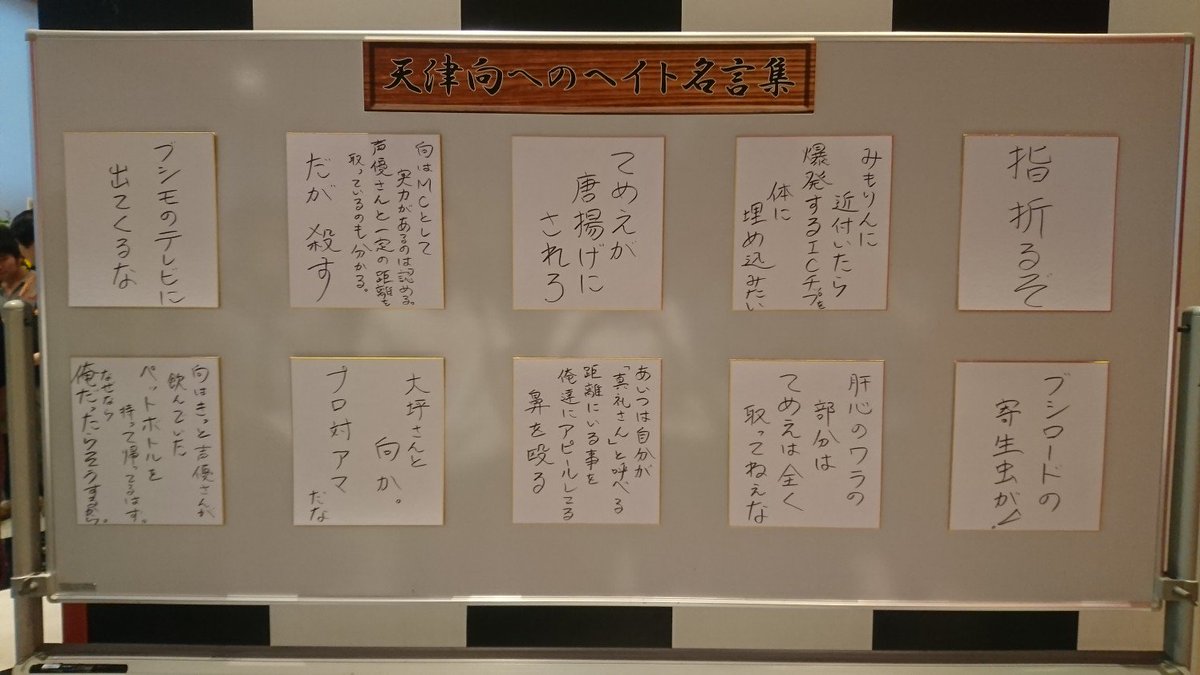 天津向へのヘイト名言集
指折るぞ
みもりんに
近付いたら
爆発するICチップを
体に
埋め込みたい
てめえが
唐揚げに
されろ
向はMCとして
実力があるのは認める。
声優さんと一定の距離を
取っているのも分かる。
だが殺す
ブシモのテレビに
出てくるな
ブシロードの
寄生虫が!
肝心のワラの
部分は
てめえは全く
取ってねえな
あいつは自分が
「真礼さん」と呼べる
距離にいる事を
俺達にアピールしてる
鼻を殴る
大坪さんと
向か。
プロ対アマ
だな
向はきっと声優さんが
飲んでいた
ペットボトルを
持って帰ってるはず。
なぜなら
俺だったらそうするから。